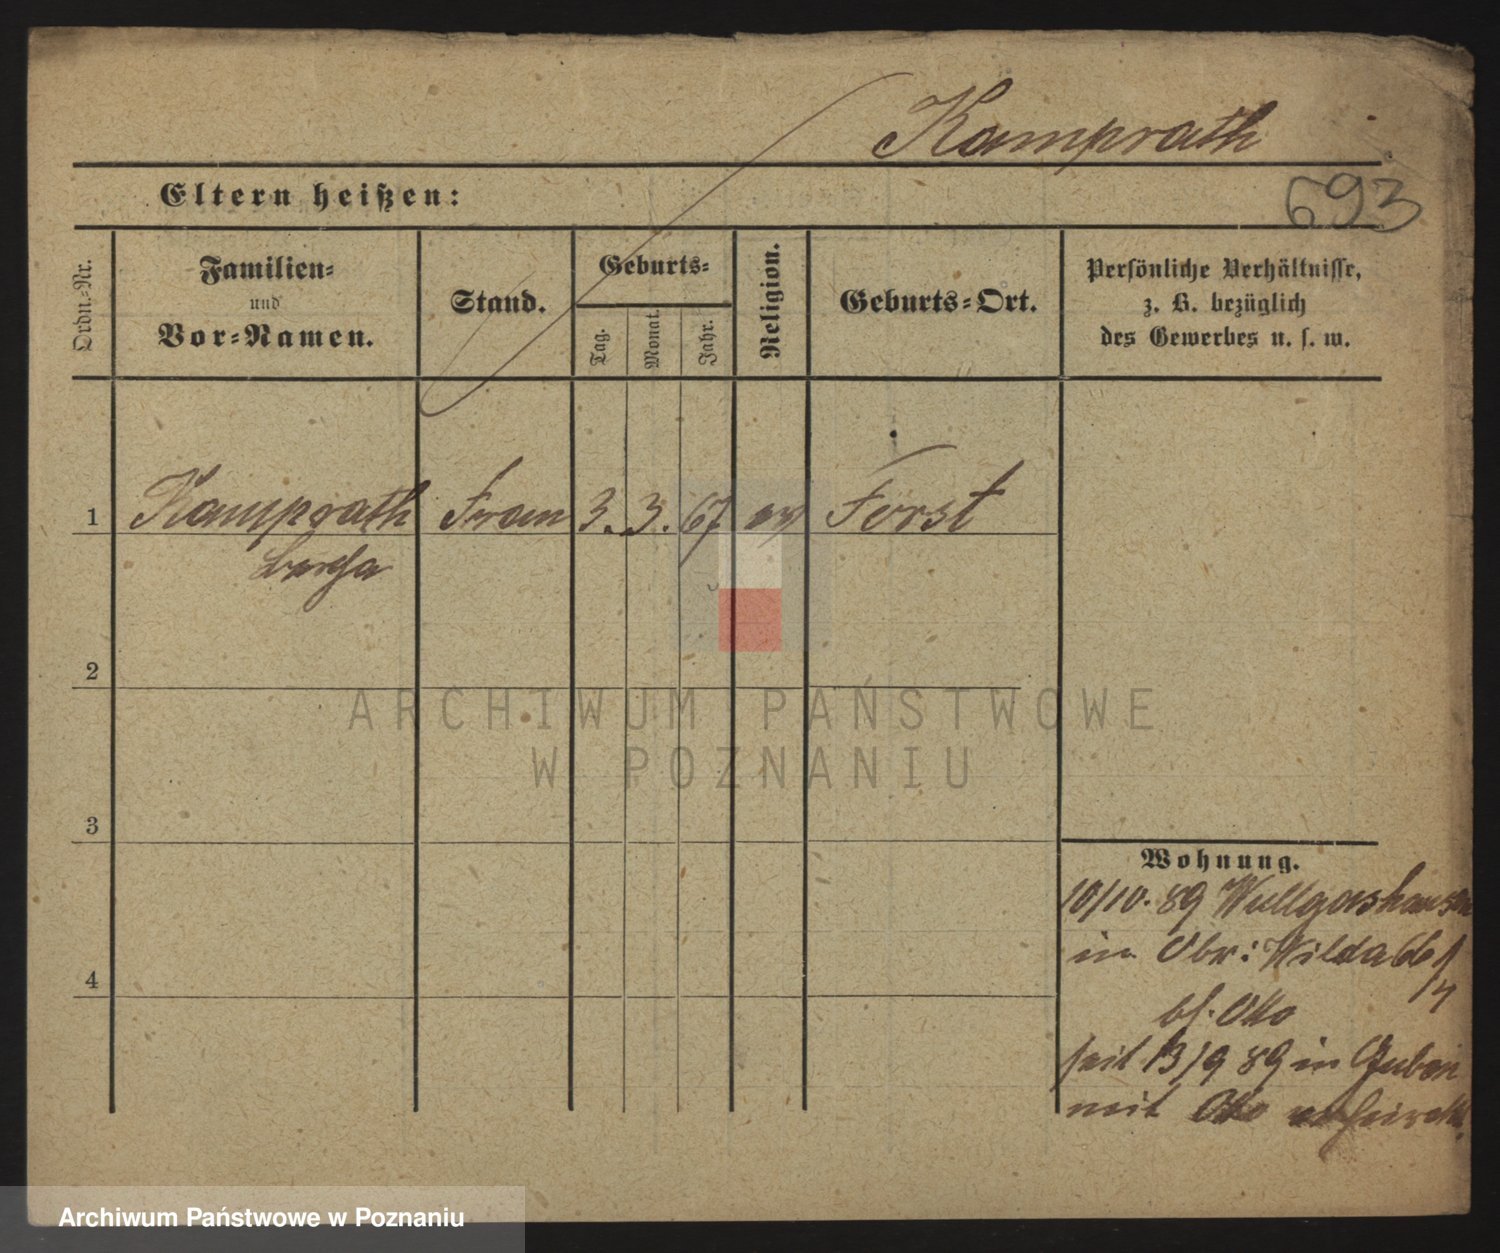 Kamprath
Eltern heißen:
693
Ordn.-Nr.
Familien-
und
Vor-Namen.
Stand.
Geburts-
Tag.
Monat.
Jahr.
Religion.
Geburts-Ort.
Persönliche Verhältnisse,
z. B. bezüglich
des Gewerbes u. s. w.
1 Kamprath Frau 3. 3. 67 ev Forst
2
3
4
Wohnung.
10/10. 89
in Obr: Wilda 66
bs. Otto
seit 13/9 89 in Guben
mit Otto verheirath.
ARCHIWUM PAŃSTWOWE
W POZNANIU
Archiwum Państwowe w Poznaniu